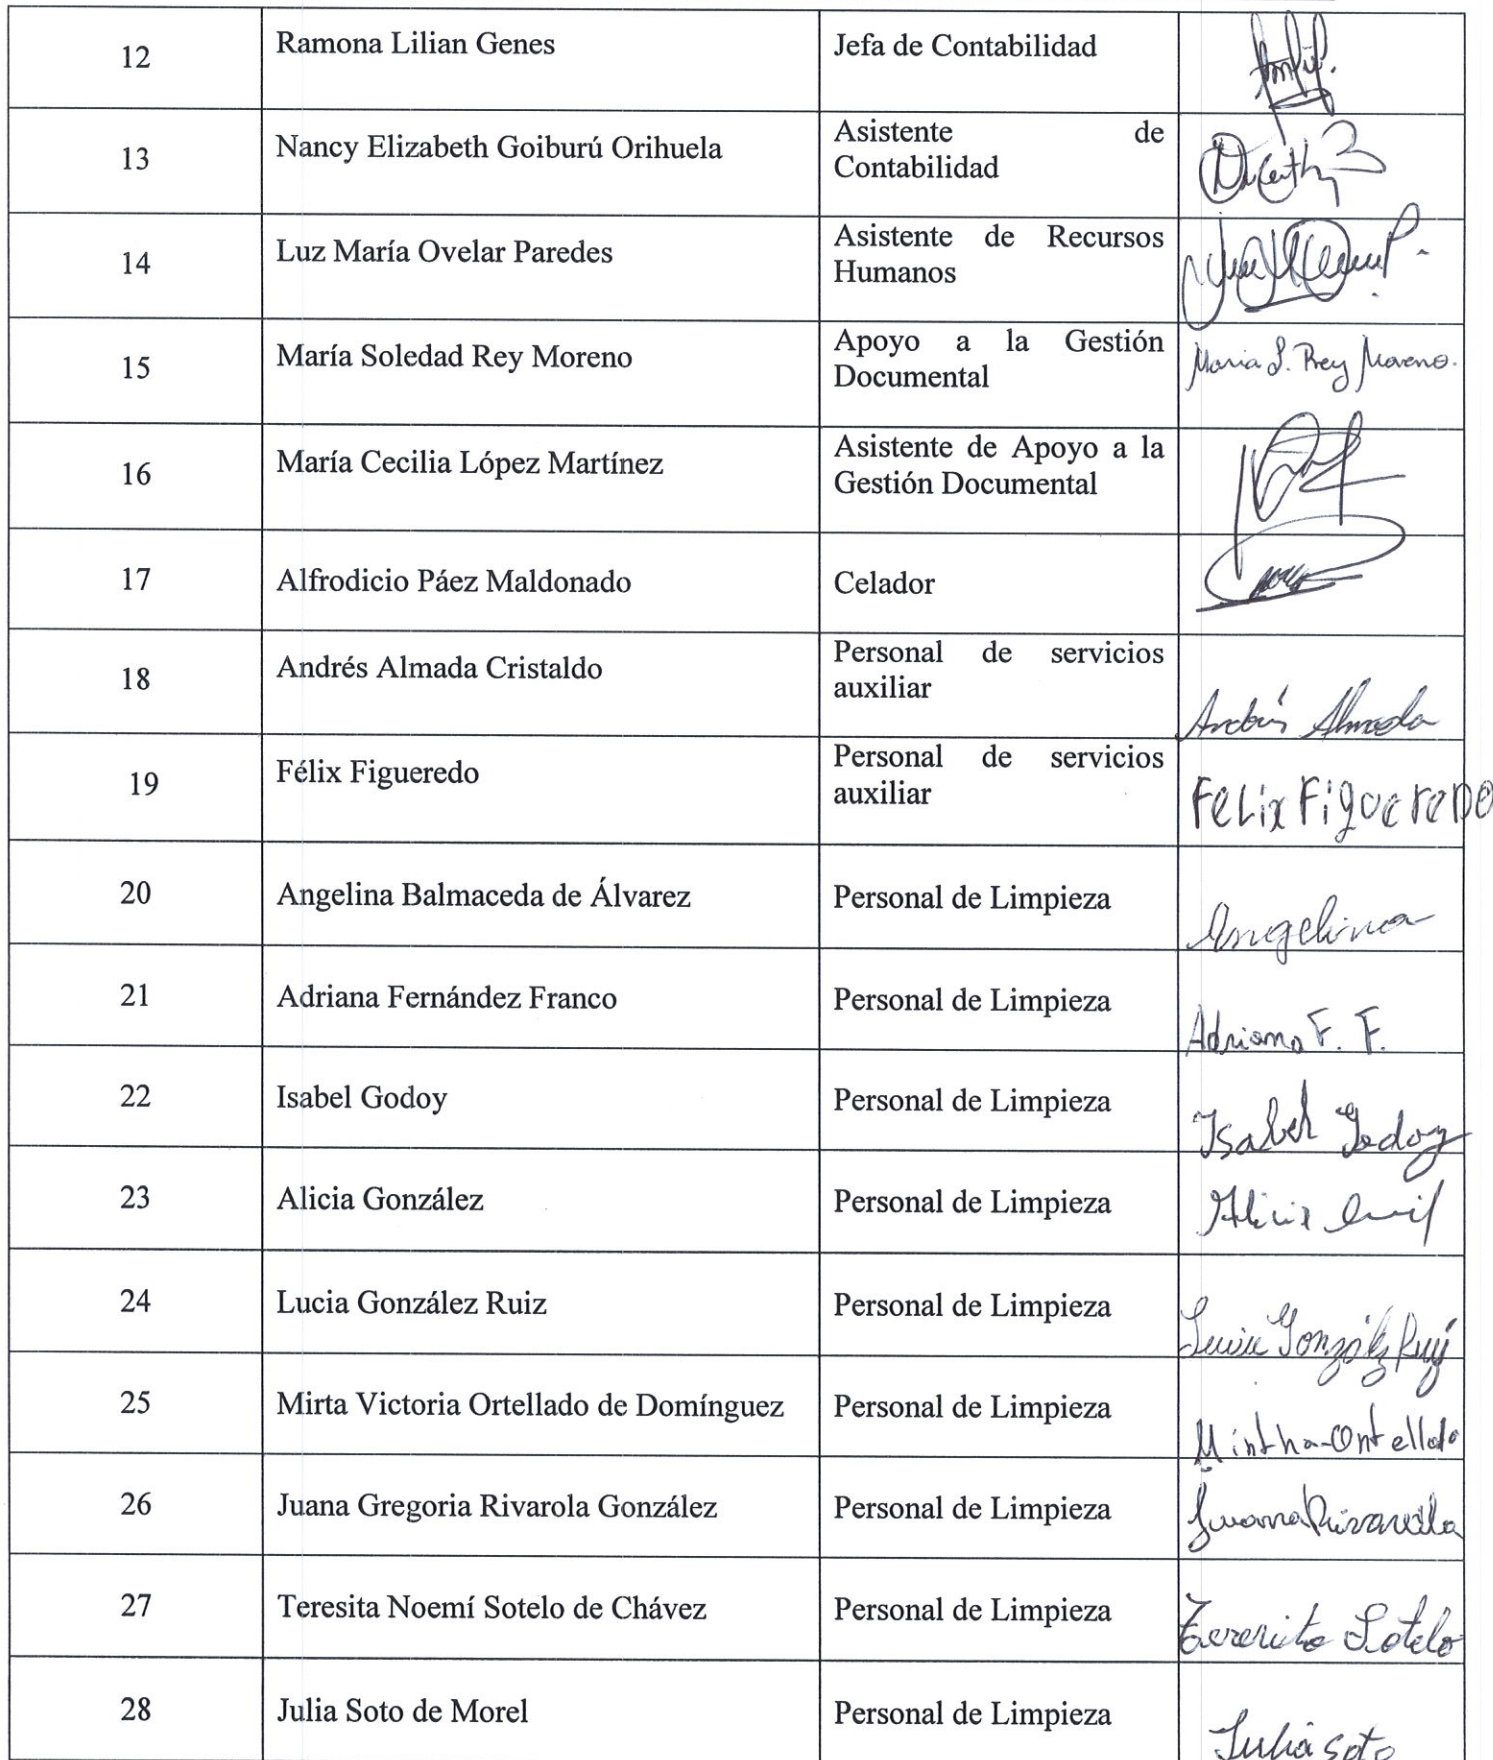 12
Ramona Lilian Genes
Jefa de Contabilidad
13
Nancy Elizabeth Goiburú Orihuela
Asistente de
Contabilidad
14
Luz María Ovelar Paredes
Asistente de Recursos
Humanos
15
María Soledad Rey Moreno
Apoyo a la Gestión
Documental
Maria S. Rey Moreno.
16
María Cecilia López Martínez
Asistente de Apoyo a la
Gestión Documental
17
Alfrodicio Páez Maldonado
Celador
18
Andrés Almada Cristaldo
Personal de servicios
auxiliar
Andrés Almada
19
Félix Figueredo
Personal de servicios
auxiliar
Felix Figueredo
20
Angelina Balmaceda de Álvarez
Personal de Limpieza
Angelina
21
Adriana Fernández Franco
Personal de Limpieza
Adriana F. F.
22
Isabel Godoy
Personal de Limpieza
Isabel Godoy
23
Alicia González
Personal de Limpieza
Alicia
24
Lucia González Ruiz
Personal de Limpieza
Lucia González Ruiz
25
Mirta Victoria Ortellado de Domínguez
Personal de Limpieza
Mirtha-Ortellado
26
Juana Gregoria Rivarola González
Personal de Limpieza
Juana Rivarola
27
Teresita Noemí Sotelo de Chávez
Personal de Limpieza
Teresita Sotelo
28
Julia Soto de Morel
Personal de Limpieza
Julia Soto